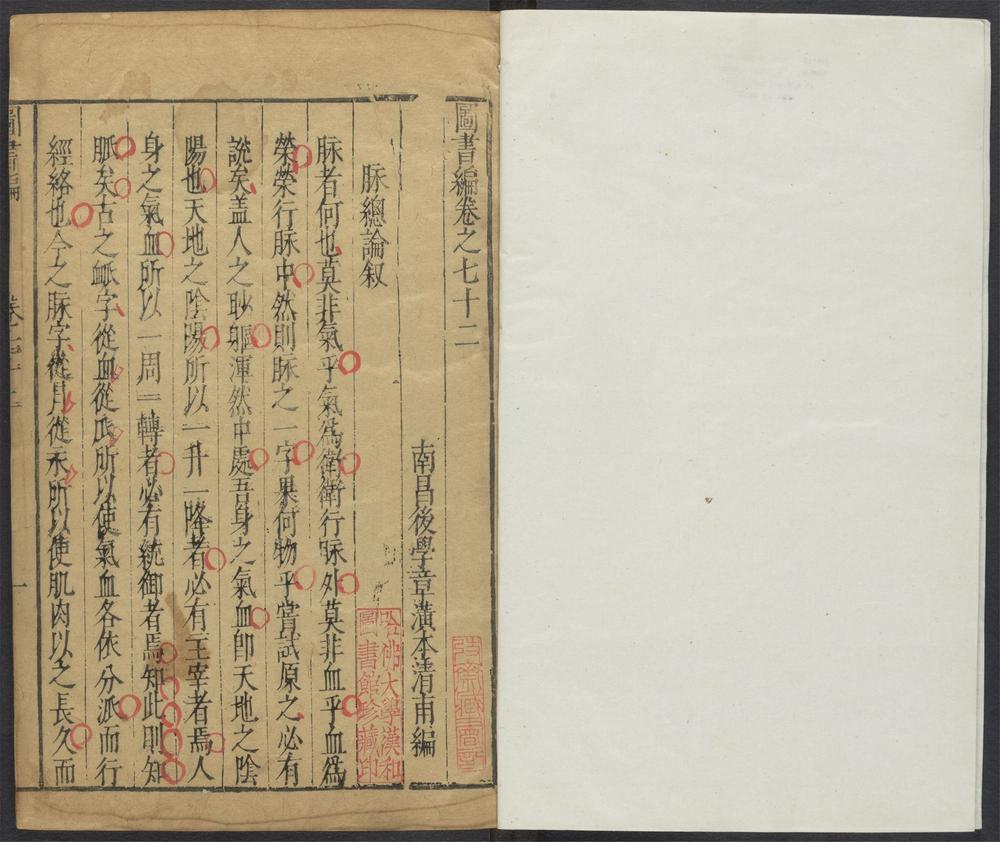 圖書編卷之七十二
南昌後學章潢本清甫編
脉總論叙
脉者何也莫非氣乎氣爲衛衛行脉外莫非血乎血爲
榮榮行脉中然則脉之一字果何物乎嘗試原之必有
說矣盖人之眇軀渾然中處吾身之氣血即天地之陰
陽也天地之陰陽所以一升一降者必有主宰者焉人
身之氣血所以一周一轉者必有統御者焉知此則知
脈矣古之衇字從血從𠂢所以使氣血各依分派而行
經絡也今之脉字從月從永所以使肌肉以之長久而
哈佛大學漢和
圖書館珍藏印
圖書編
一